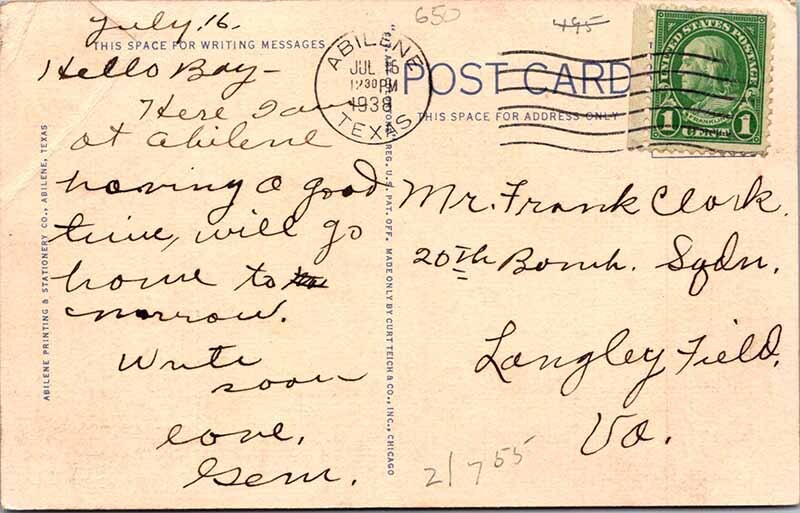 July 16.
THIS SPACE FOR WRITING MESSAGES
Hello Boy-
Here I am
at Abilene
having a good
time, will go
home to
morrow.
Write
soon
Love,
Gem.
ABILENE PRINTING & STATIONERY CO., ABILENE, TEXAS
REG. U.S. PAT. OFF. MADE ONLY BY CURT TEICH & CO., INC., CHICAGO
650
495
ABILENE
JUL 16
12 30 PM
1938
TEXAS
POST CARD
THIS SPACE FOR ADDRESS ONLY
UNITED STATES POSTAGE
FRANKLIN
1 CENT 1
Mr. Frank Clark.
20th Bomb. Sqdn.
Langley Field,
Va.
2/7 55